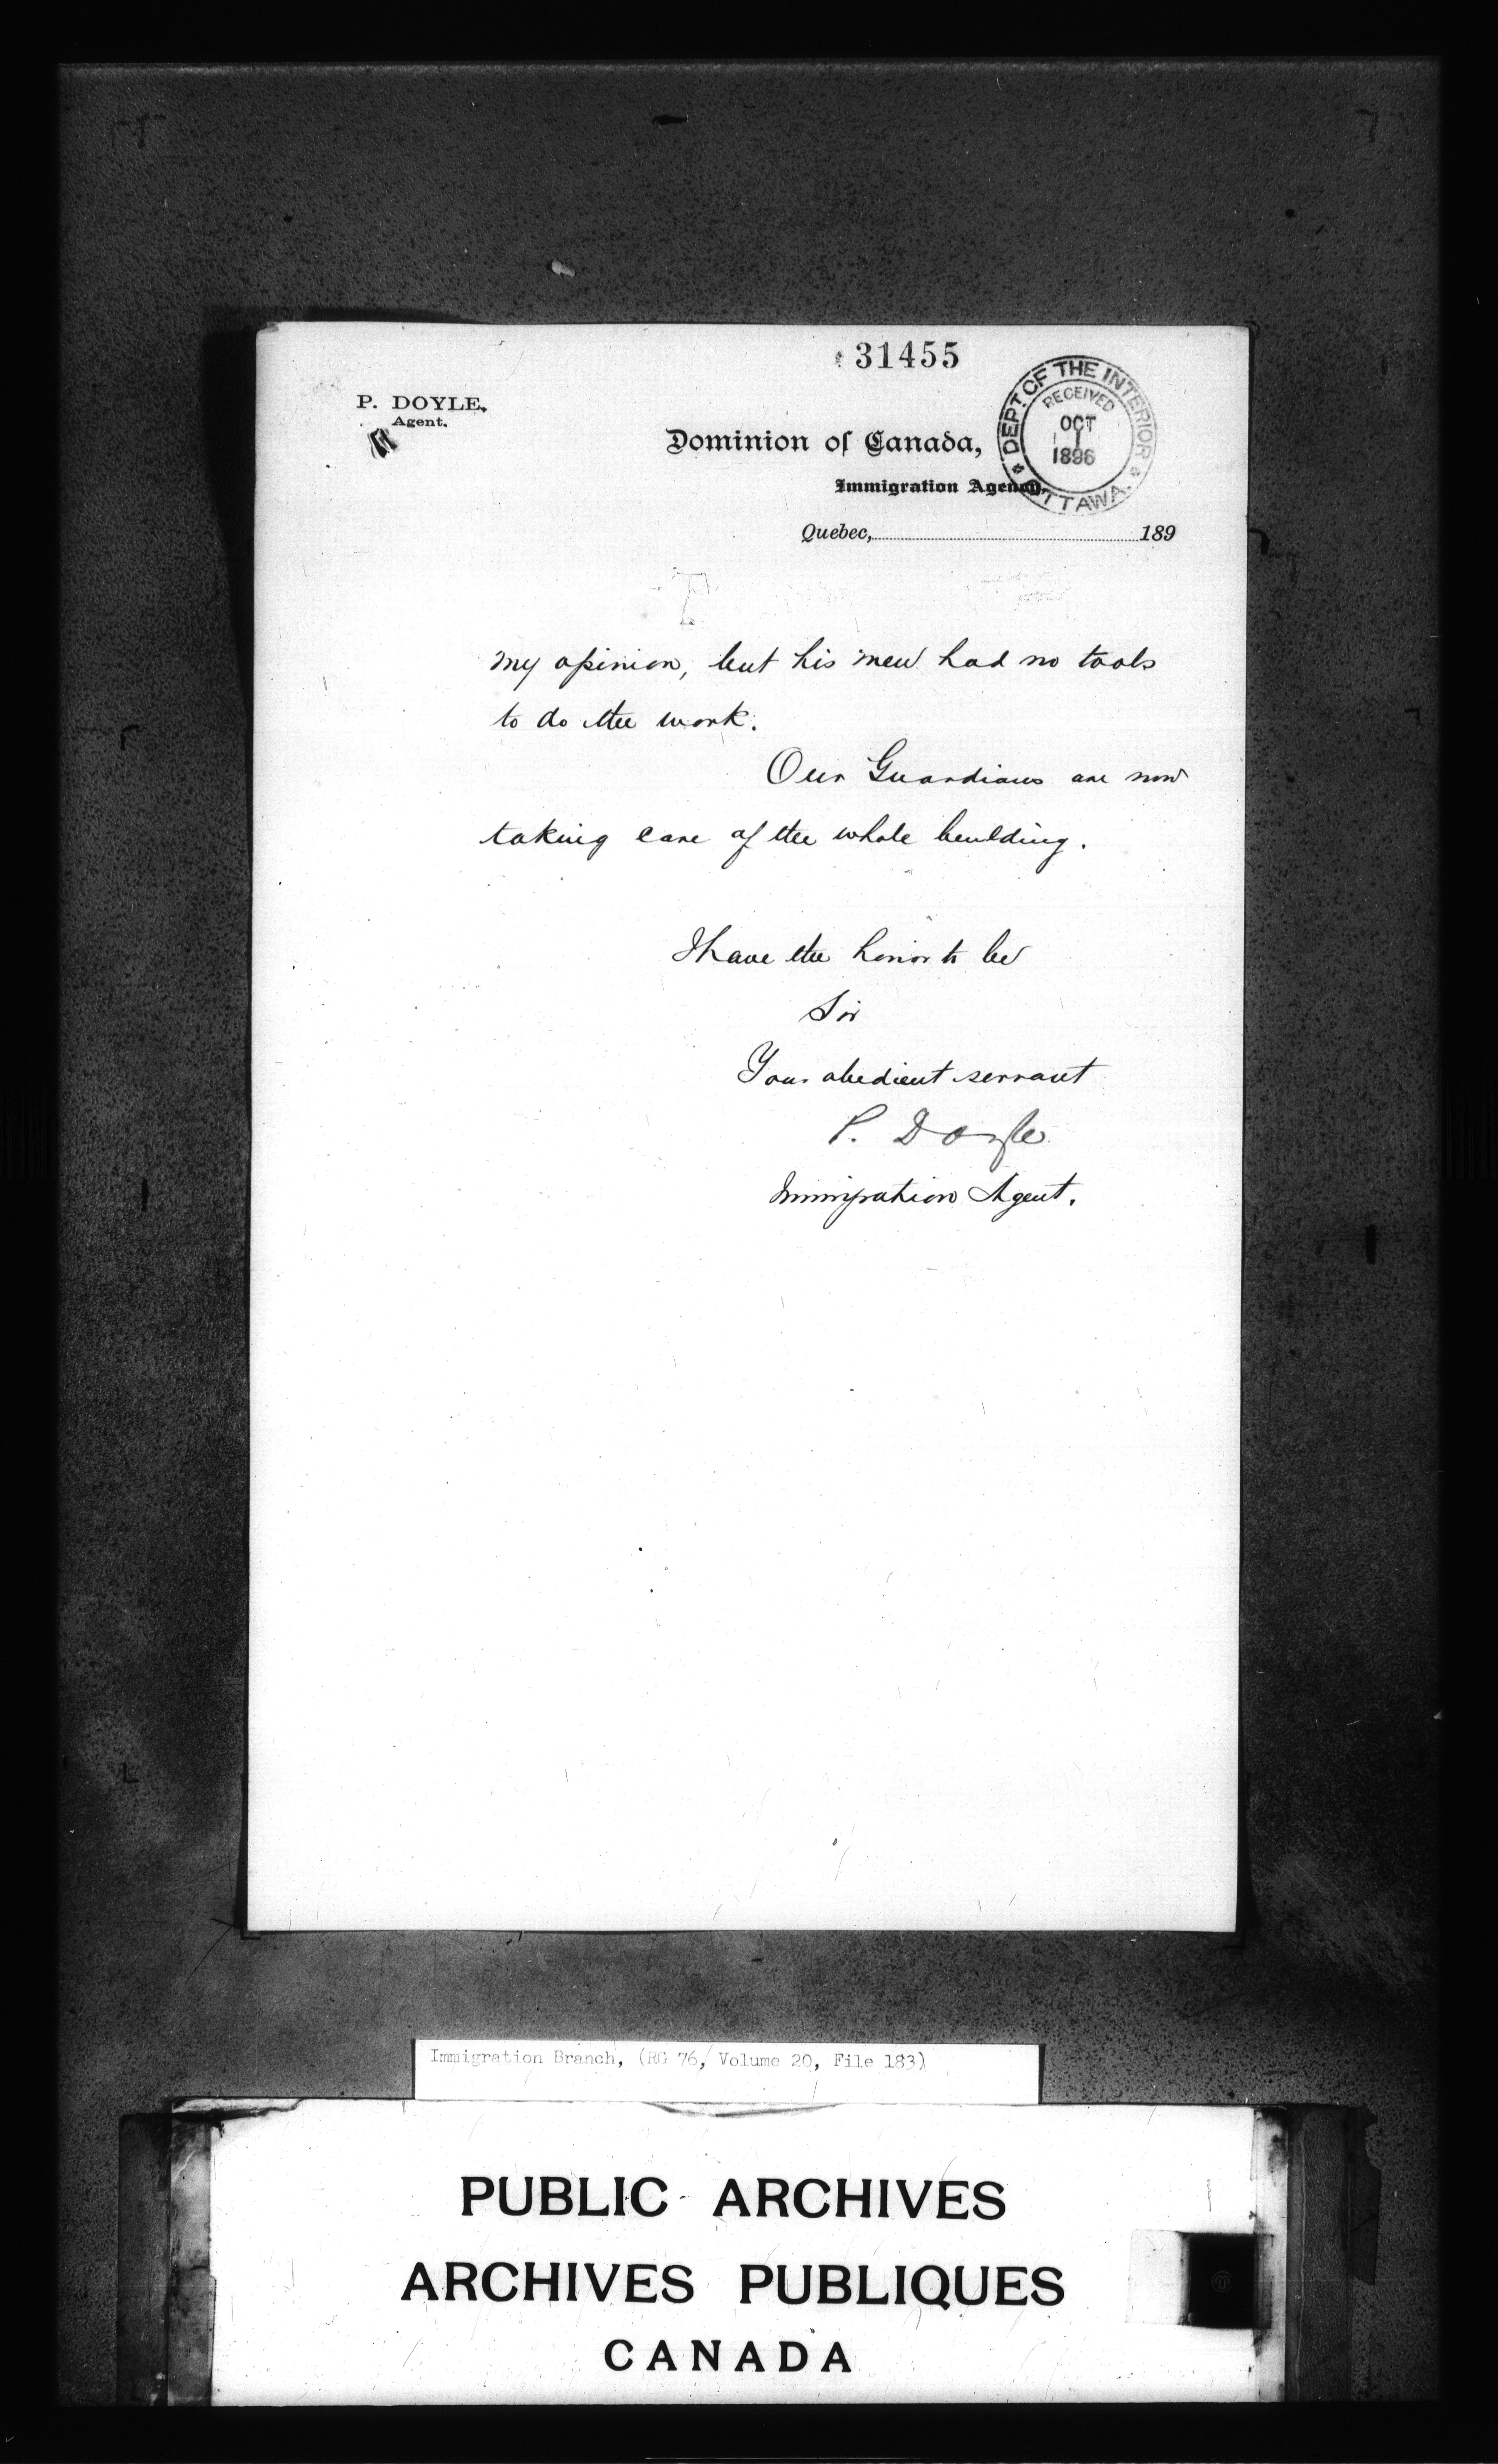 31455
P. DOYLE,
Agent.
DEPT. OF THE INTERIOR
RECEIVED
OCT
1
1896
OTTAWA.
Dominion of Canada,
Immigration Agency.
Quebec, 189
my opinion, but his men had no tools
to do the work.
Our Guardians are now
taking care of the whole building.
I have the honor to be
Sir
Your obedient servant
P. Doyle
Immigration Agent.
Immigration Branch, (RG 76, Volume 20, File 183)
PUBLIC ARCHIVES
ARCHIVES PUBLIQUES
CANADA